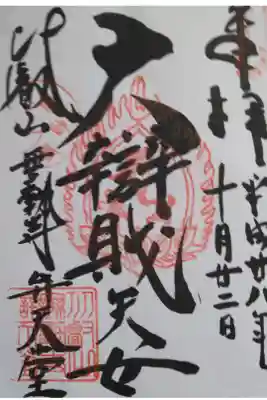 奉拝
平成廿八年
十月廿二日
大辯財天女
比叡山 無動寺 弁天堂